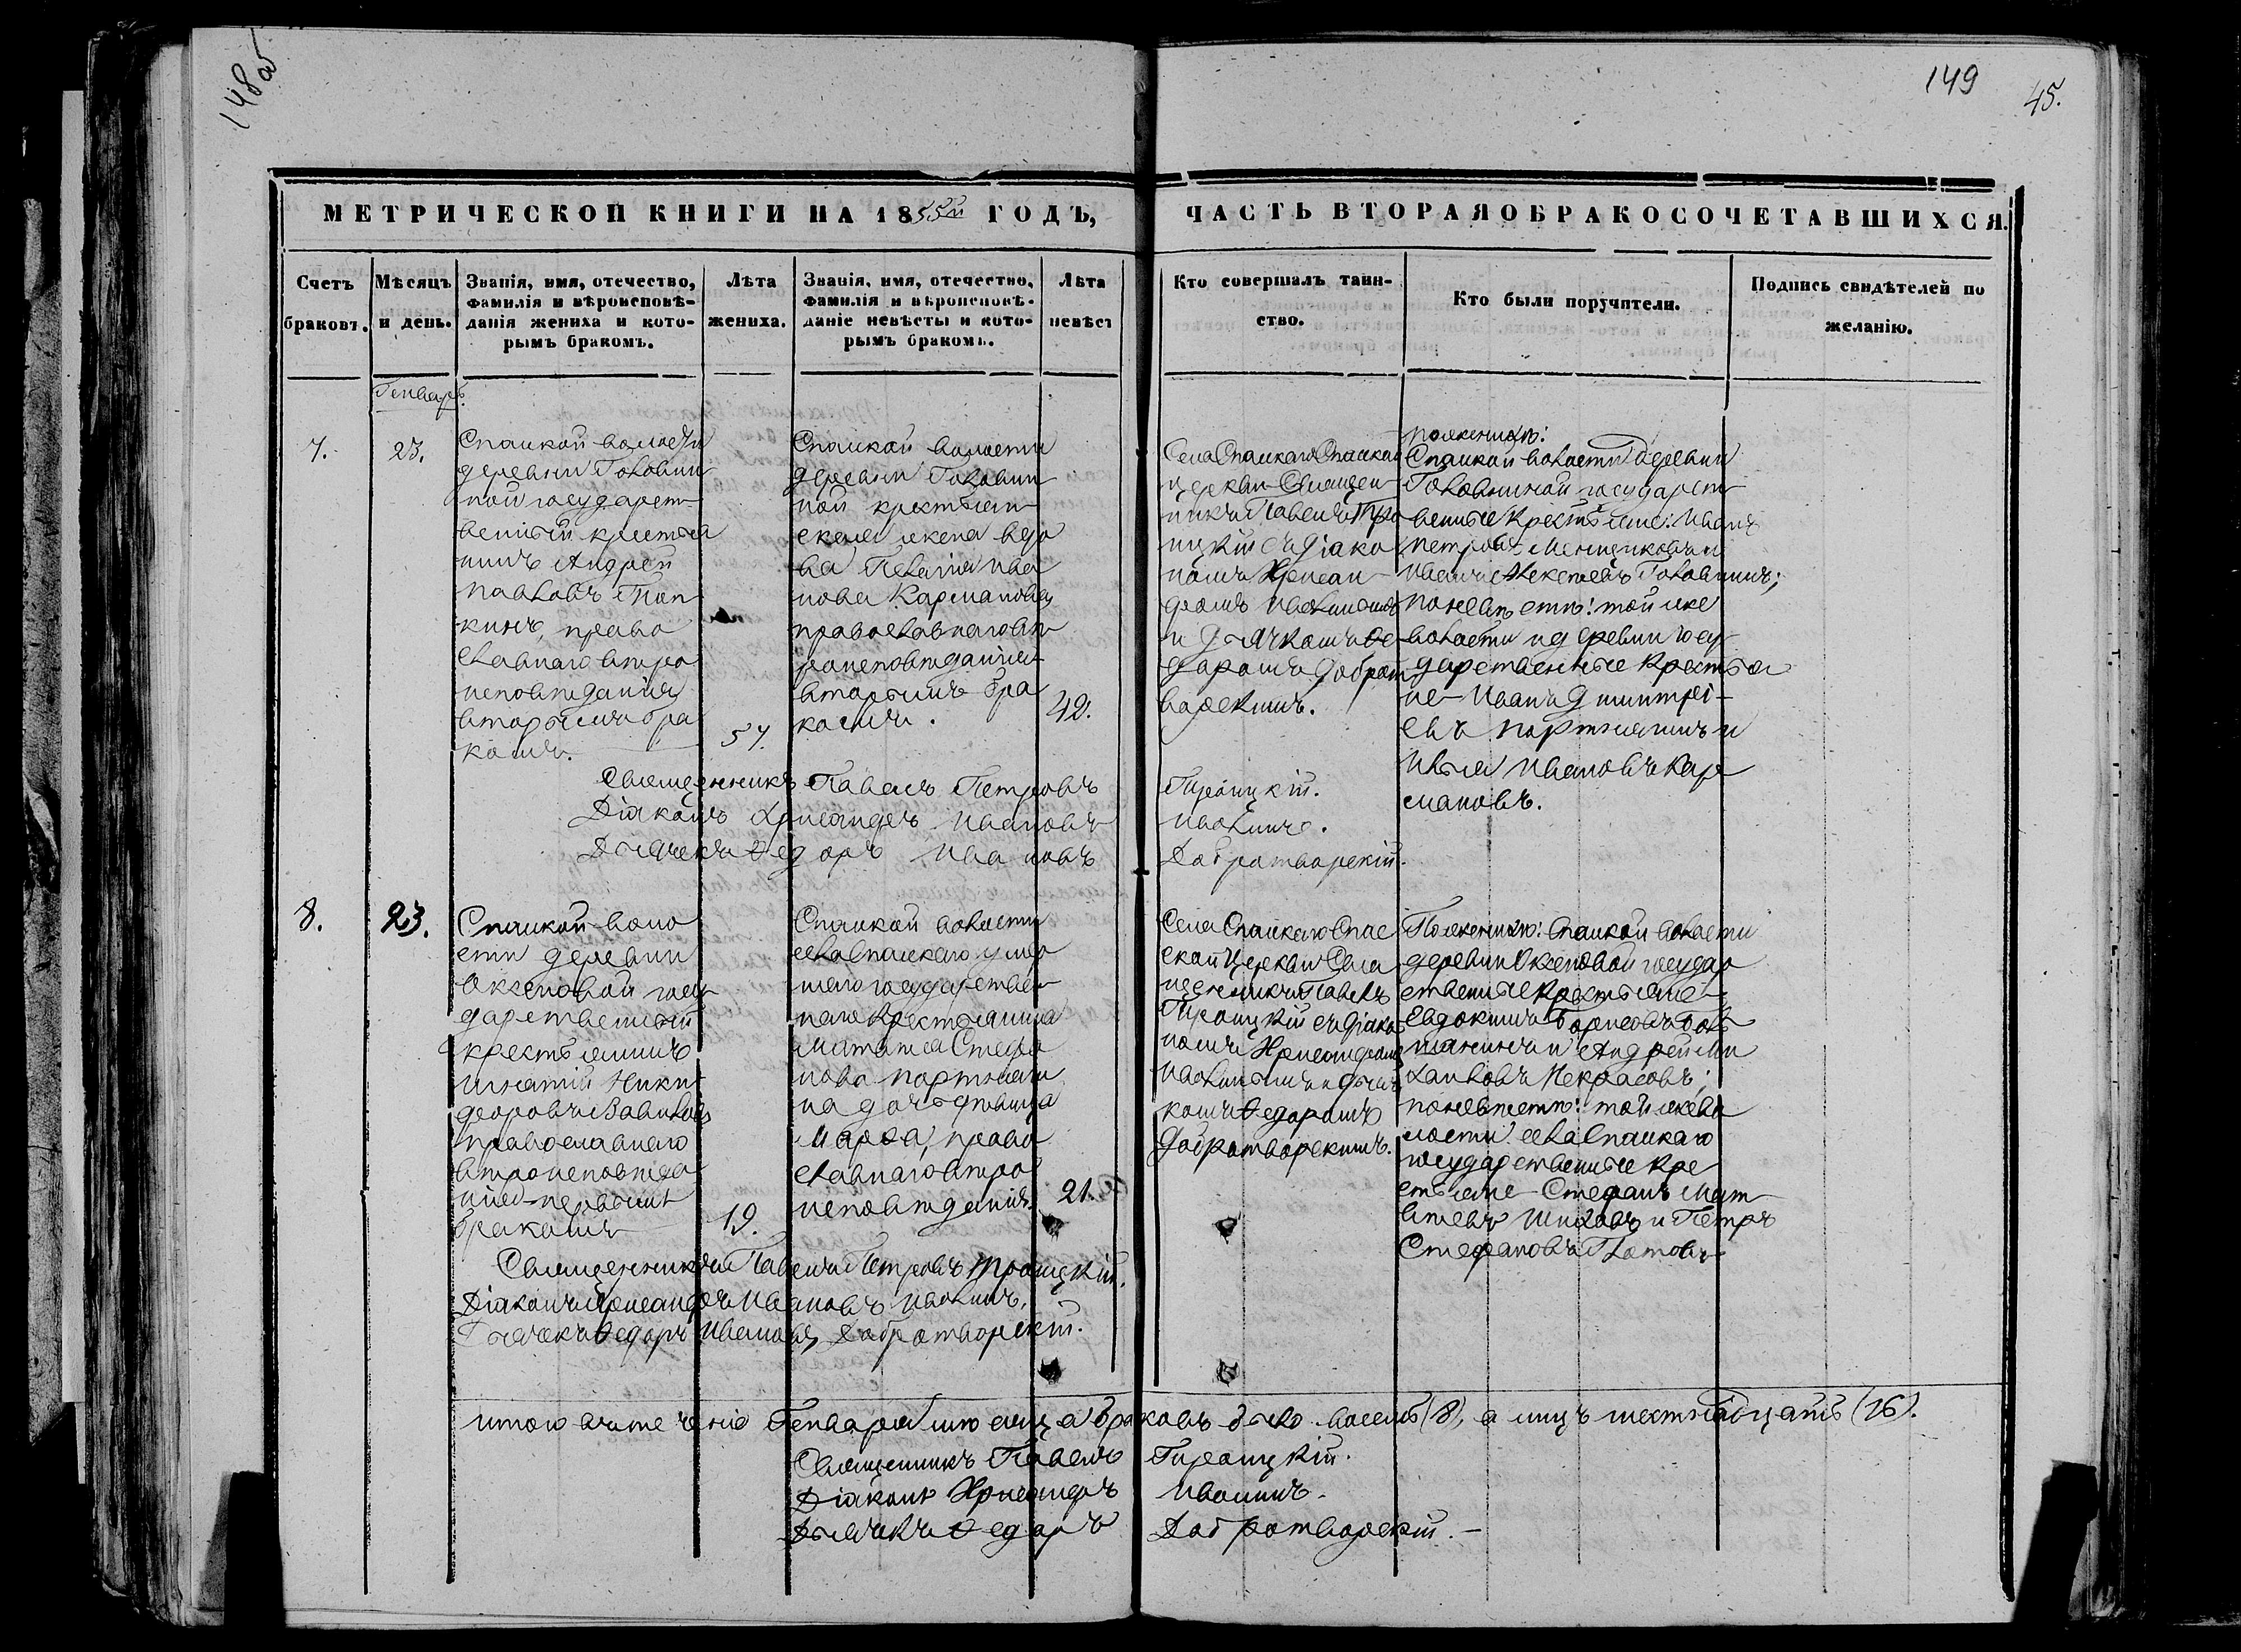 148об
149
45.
МЕТРИЧЕСКОЙ КНИГИ НА 1855й ГОДЪ,
ЧАСТЬ ВТОРАЯ О БРАКОСОЧЕТАВШИХСЯ.
Счетъ
браковъ.
Мѣсяцъ
и день.
Званія, имя, отечество,
фамилія и вѣроисповѣ-
данія жениха и кото-
рымъ бракомъ.
Лѣта
жениха.
Званія, имя, отечество,
фамилія и вѣроисповѣ-
даніе невѣсты и кото-
рымъ бракомъ.
Лѣта
невѣст
Кто совершалъ таин-
ство.
Кто были поручители.
Подпись свидѣтелей по
желанію.
Генварь.
7.
23.
Спаской волости
деревни Головин
ной государст-
венный крестья
нинъ Андрей
Павловъ
кинъ, право
славнаго вѣро
исповѣданія
вторымъ бра
комъ.
57.
Спаской волости
деревни Головин
ной крестьян-
ская жена вдо
ва Пелагія Ива
нова Карманова
православнаго вѣ
роисповѣданія
вторымъ бра
комъ.
42.
Села Спаскаго Спаской
церкви Священ
никъ Павелъ Тро
ицкій съ Діако
номъ Хрисан
фомъ Ивлинымъ
и Дьячкомъ Ѳе
доромъ Доброт
ворскимъ.
По женихѣ:
Спаской волости деревни
Головинной государст
венные крестьяне: Иванъ
Петровъ Менщиковъ и
Иванъ Алексѣевъ Головинъ;
по невѣстѣ: той же
волости и деревни госу
дарственные крестья
не Иванъ Дмитрі-
евъ Портнягинъ и
Илья Ивановъ Кар
мановъ.
Священникъ Павелъ Петровъ Троицкій.
Діаконъ Хрисанфъ Ивановъ Ивлинъ.
Дьячекъ Ѳедоръ Ивановъ Добротворскій.
8.
23.
Спаской воло
сти деревни
Оксеновой госу
дарственный
крестьянинъ
Игнатій Ники
форовъ Вавиловъ
православнаго
вѣроисповѣда
нія первымъ
бракомъ
19.
Спаской волости
села Спаскаго умер
шаго государствен
наго крестьянина
Матвѣя Стефа
нова Портняги
на дочь дѣвица
Марѳа, право
славнаго вѣро
исповѣданія.
21.
Села Спаскаго Спас
ской Церкви Свя
щенникъ Павелъ
Троицкій съ Діако
номъ Хрисанфомъ
Ивлинымъ и дьяч
комъ Ѳедоромъ
Добротворскимъ.
По женихѣ: Спаской волости
деревни Оксеновой государ
ственные крестьяне
Евдокимъ Борисовъ
и Андрей Ми
хаиловъ Некрасовъ;
по невѣстѣ: той же во
лости села Спаскаго
государственные кре
стьяне Стефанъ Мат
вѣевъ и Петръ
Стефановъ
Священникъ Павелъ Петровъ Троицкій.
Діаконъ Хрисанфъ Ивановъ Ивлинъ,
Дьячекъ Ѳедоръ Ивановъ Добротворскій.
Итого въ теченіе Генваря мѣсяца браковъ было восемь (8), а лицъ шестнадцать (16).
Священникъ Павелъ Троицкій.
Діаконъ Хрисанфъ Ивлинъ.
Дьячекъ Ѳедоръ Добротворскій.